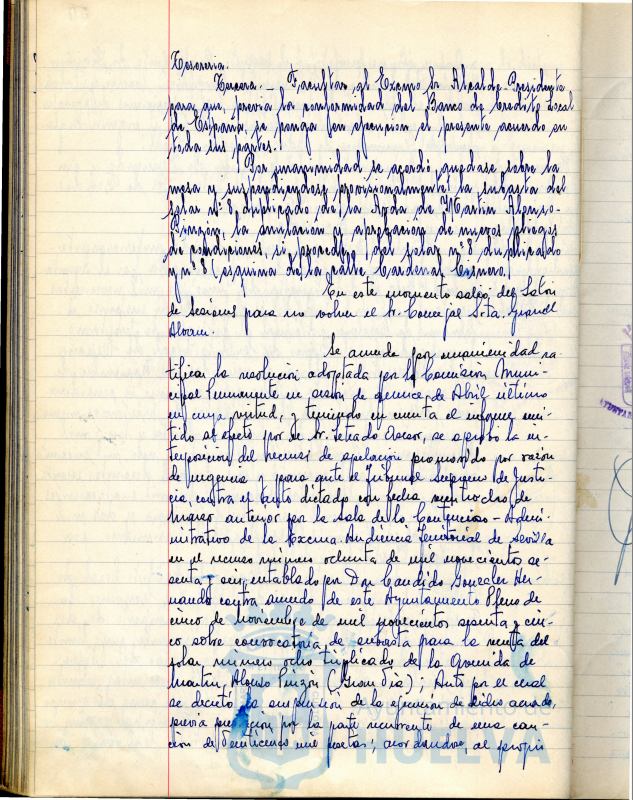 Tesorería.
Tercera.- Facultar al Excmo. Sr. Alcalde-Presidente
para que, previa la conformidad del Banco de Crédito Local
de España, se ponga en ejecución el presente acuerdo en
todas sus partes.
Por unanimidad se acordó quedase sobre la
mesa y suspendiéndose provisionalmente la subasta del
solar nº 8 duplicado de la Avda de Martín Alonso-
Pinzón, la anulación y aprobación de nuevos pliegos
de condiciones, si procede, del solar nº 8 duplicado
y nº 8 (esquina de la calle Cardenal Cisneros.)
En este momento salió del Salón
de Sesiones para no volver el Sr. Concejal Sota. Grandl
Alvarez.
Se acuerda por unanimidad ra-
tificar la resolución adoptada por la Comisión Muni-
cipal Permanente en sesión de quince de Abril último
en cuya virtud, y teniendo en cuenta el informe emi-
tido al efecto por el Sr. Letrado Asesor, se aprobó la in-
terposición del recurso de apelación promovido por razón
de urgencia y para ante el Tribunal Supremo de Justi-
cia, contra el auto dictado con fecha veintiocho de
Marzo anterior por la Sala de lo Contencioso-Admi-
nistrativo de la Excma. Audiencia Territorial de Sevilla
en el recurso número ochenta de mil novecientos se-
senta y seis, entablado por Don Candido Gonzalez Her-
nando contra acuerdo de este Ayuntamiento Pleno de
cinco de Noviembre de mil novecientos sesenta y cin-
co, sobre convocatoria de subasta para la venta del
solar número ocho triplicado de la Avenida de
Martín Alonso Pinzón (Gran Vía); Auto por el cual
se decretó la suspensión de la ejecución de dicho acuerdo,
previa prestación por la parte recurrente de una cau-
ción de mil pesetas; acordándose, al propio
Ayuntamiento de
HUELVA